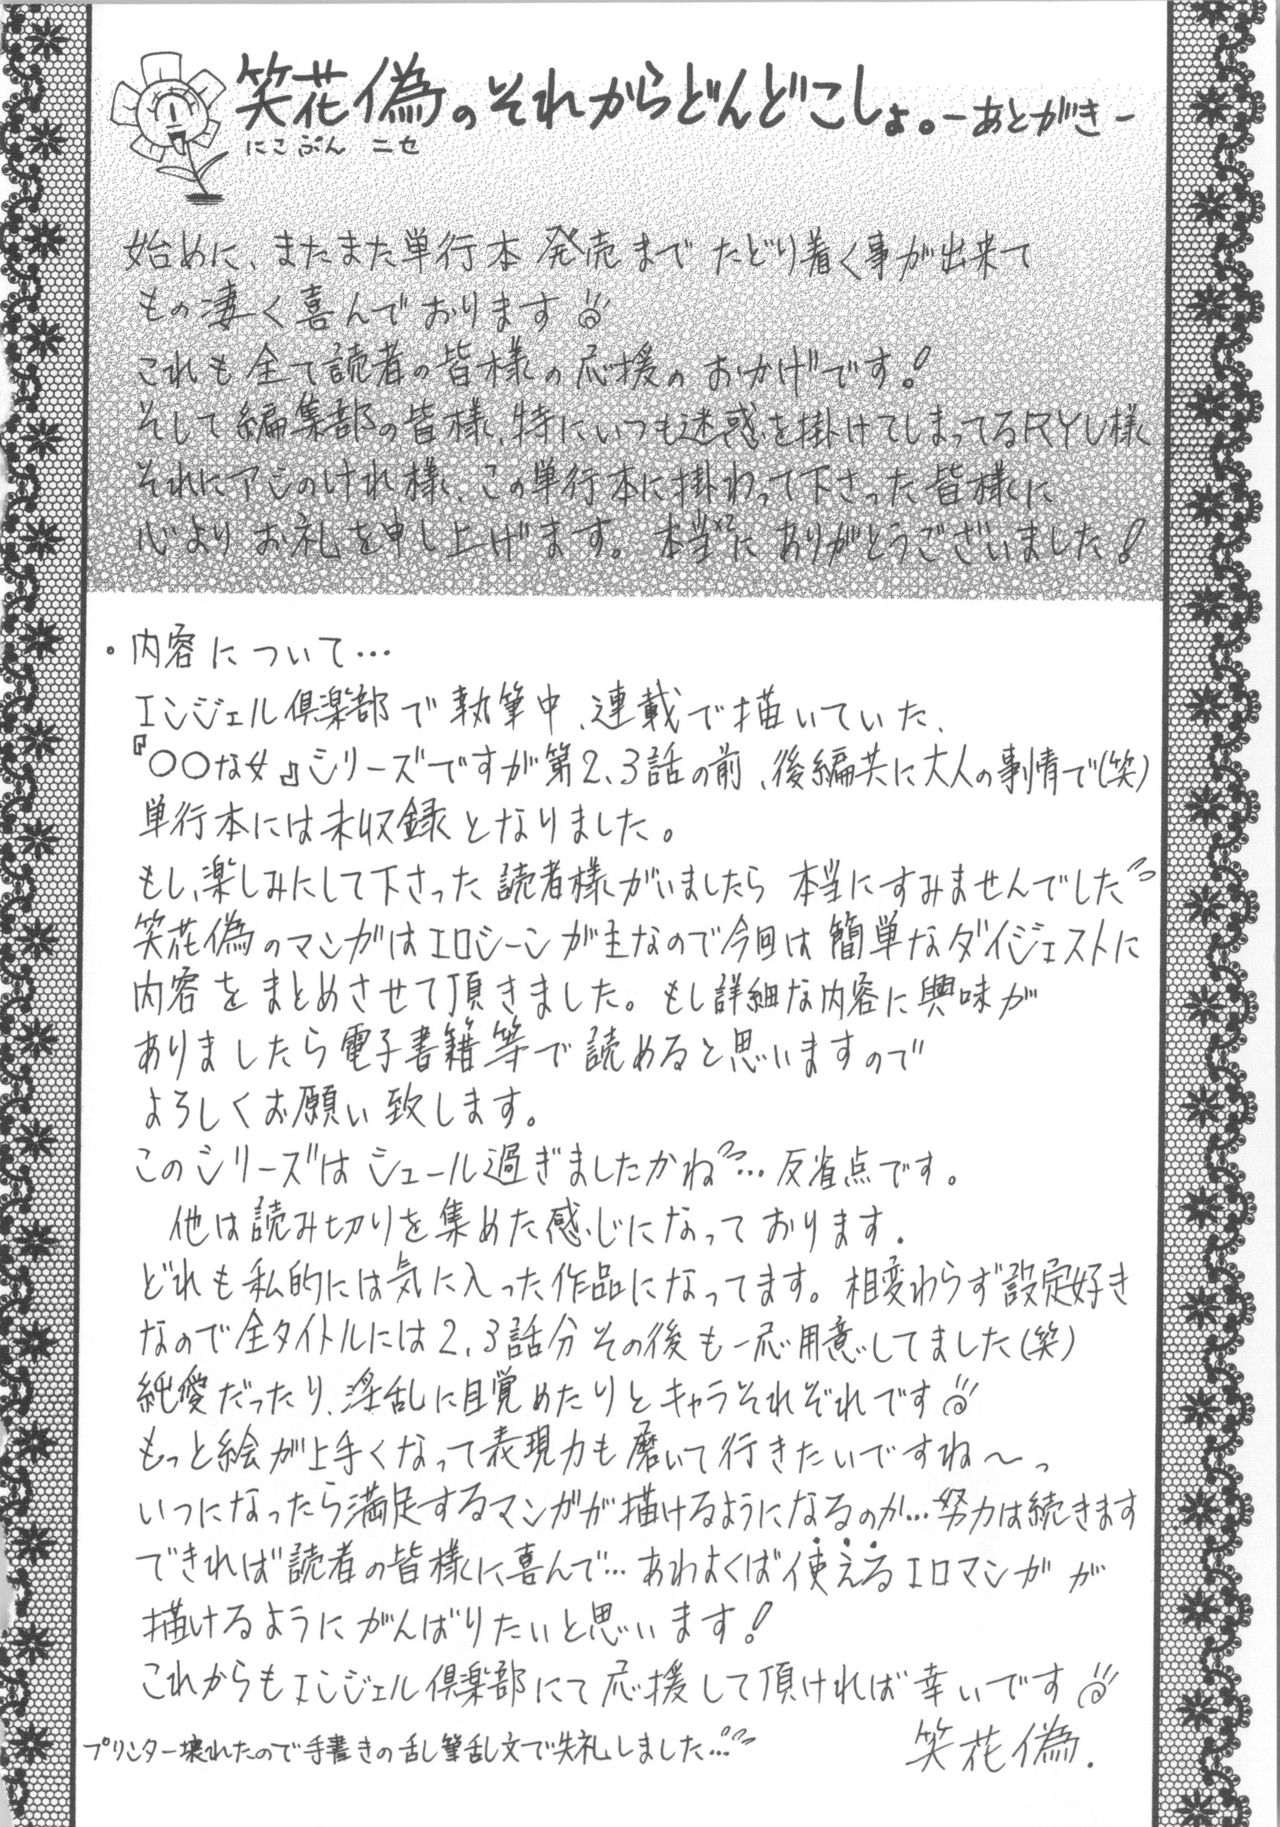 笑花偽のそれからどんどこしょ。-あとがき-
にこぷん ニセ
始めに、またまた単行本発売までたどり着く事が出来て
もの凄く喜んでおります
これも全て読者の皆様の応援のおかげです!
そして編集部の皆様、特にいつも迷惑を掛けてしまってるRYU様
それにアシのけれ様、この単行本に掛わって下さった皆様に
心よりお礼を申し上げます。本当にありがとうございました!
・内容について…
エンジェル倶楽部で執筆中、連載で描いていた、
『○○な女』シリーズですが第2、3話の前、後編共に大人の事情で(笑)
単行本には未収録となりました。
もし、楽しみにして下さった読者様がいましたら本当にすみませんでした
笑花偽のマンガはエロシーンが主なので今回は簡単なダイジェストに
内容をまとめさせて頂きました。もし詳細な内容に興味が
ありましたら電子書籍等で読めると思いますので
よろしくお願い致します。
このシリーズはシュール過ぎましたかね…反省点です。
他は読み切りを集めた感じになっております.
どれも私的には気に入った作品になってます。相変わらず設定好き
なので全タイトルには2、3話分その後も一応用意してました(笑)
純愛だったり、淫乱に目覚めたりとキャラそれぞれです
もっと絵が上手くなって表現力も磨いて行きたいですね～っ
いつになったら満足するマンガが描けるようになるのか…努力は続きます
できれば読者の皆様に喜んで…あわよくば使えるエロマンガが
描けるようにがんばりたいと思います!
これからもエンジェル倶楽部にて応援して頂ければ幸いです
プリンター壊れたので手書きの乱筆乱文で失礼しました…
笑花偽.